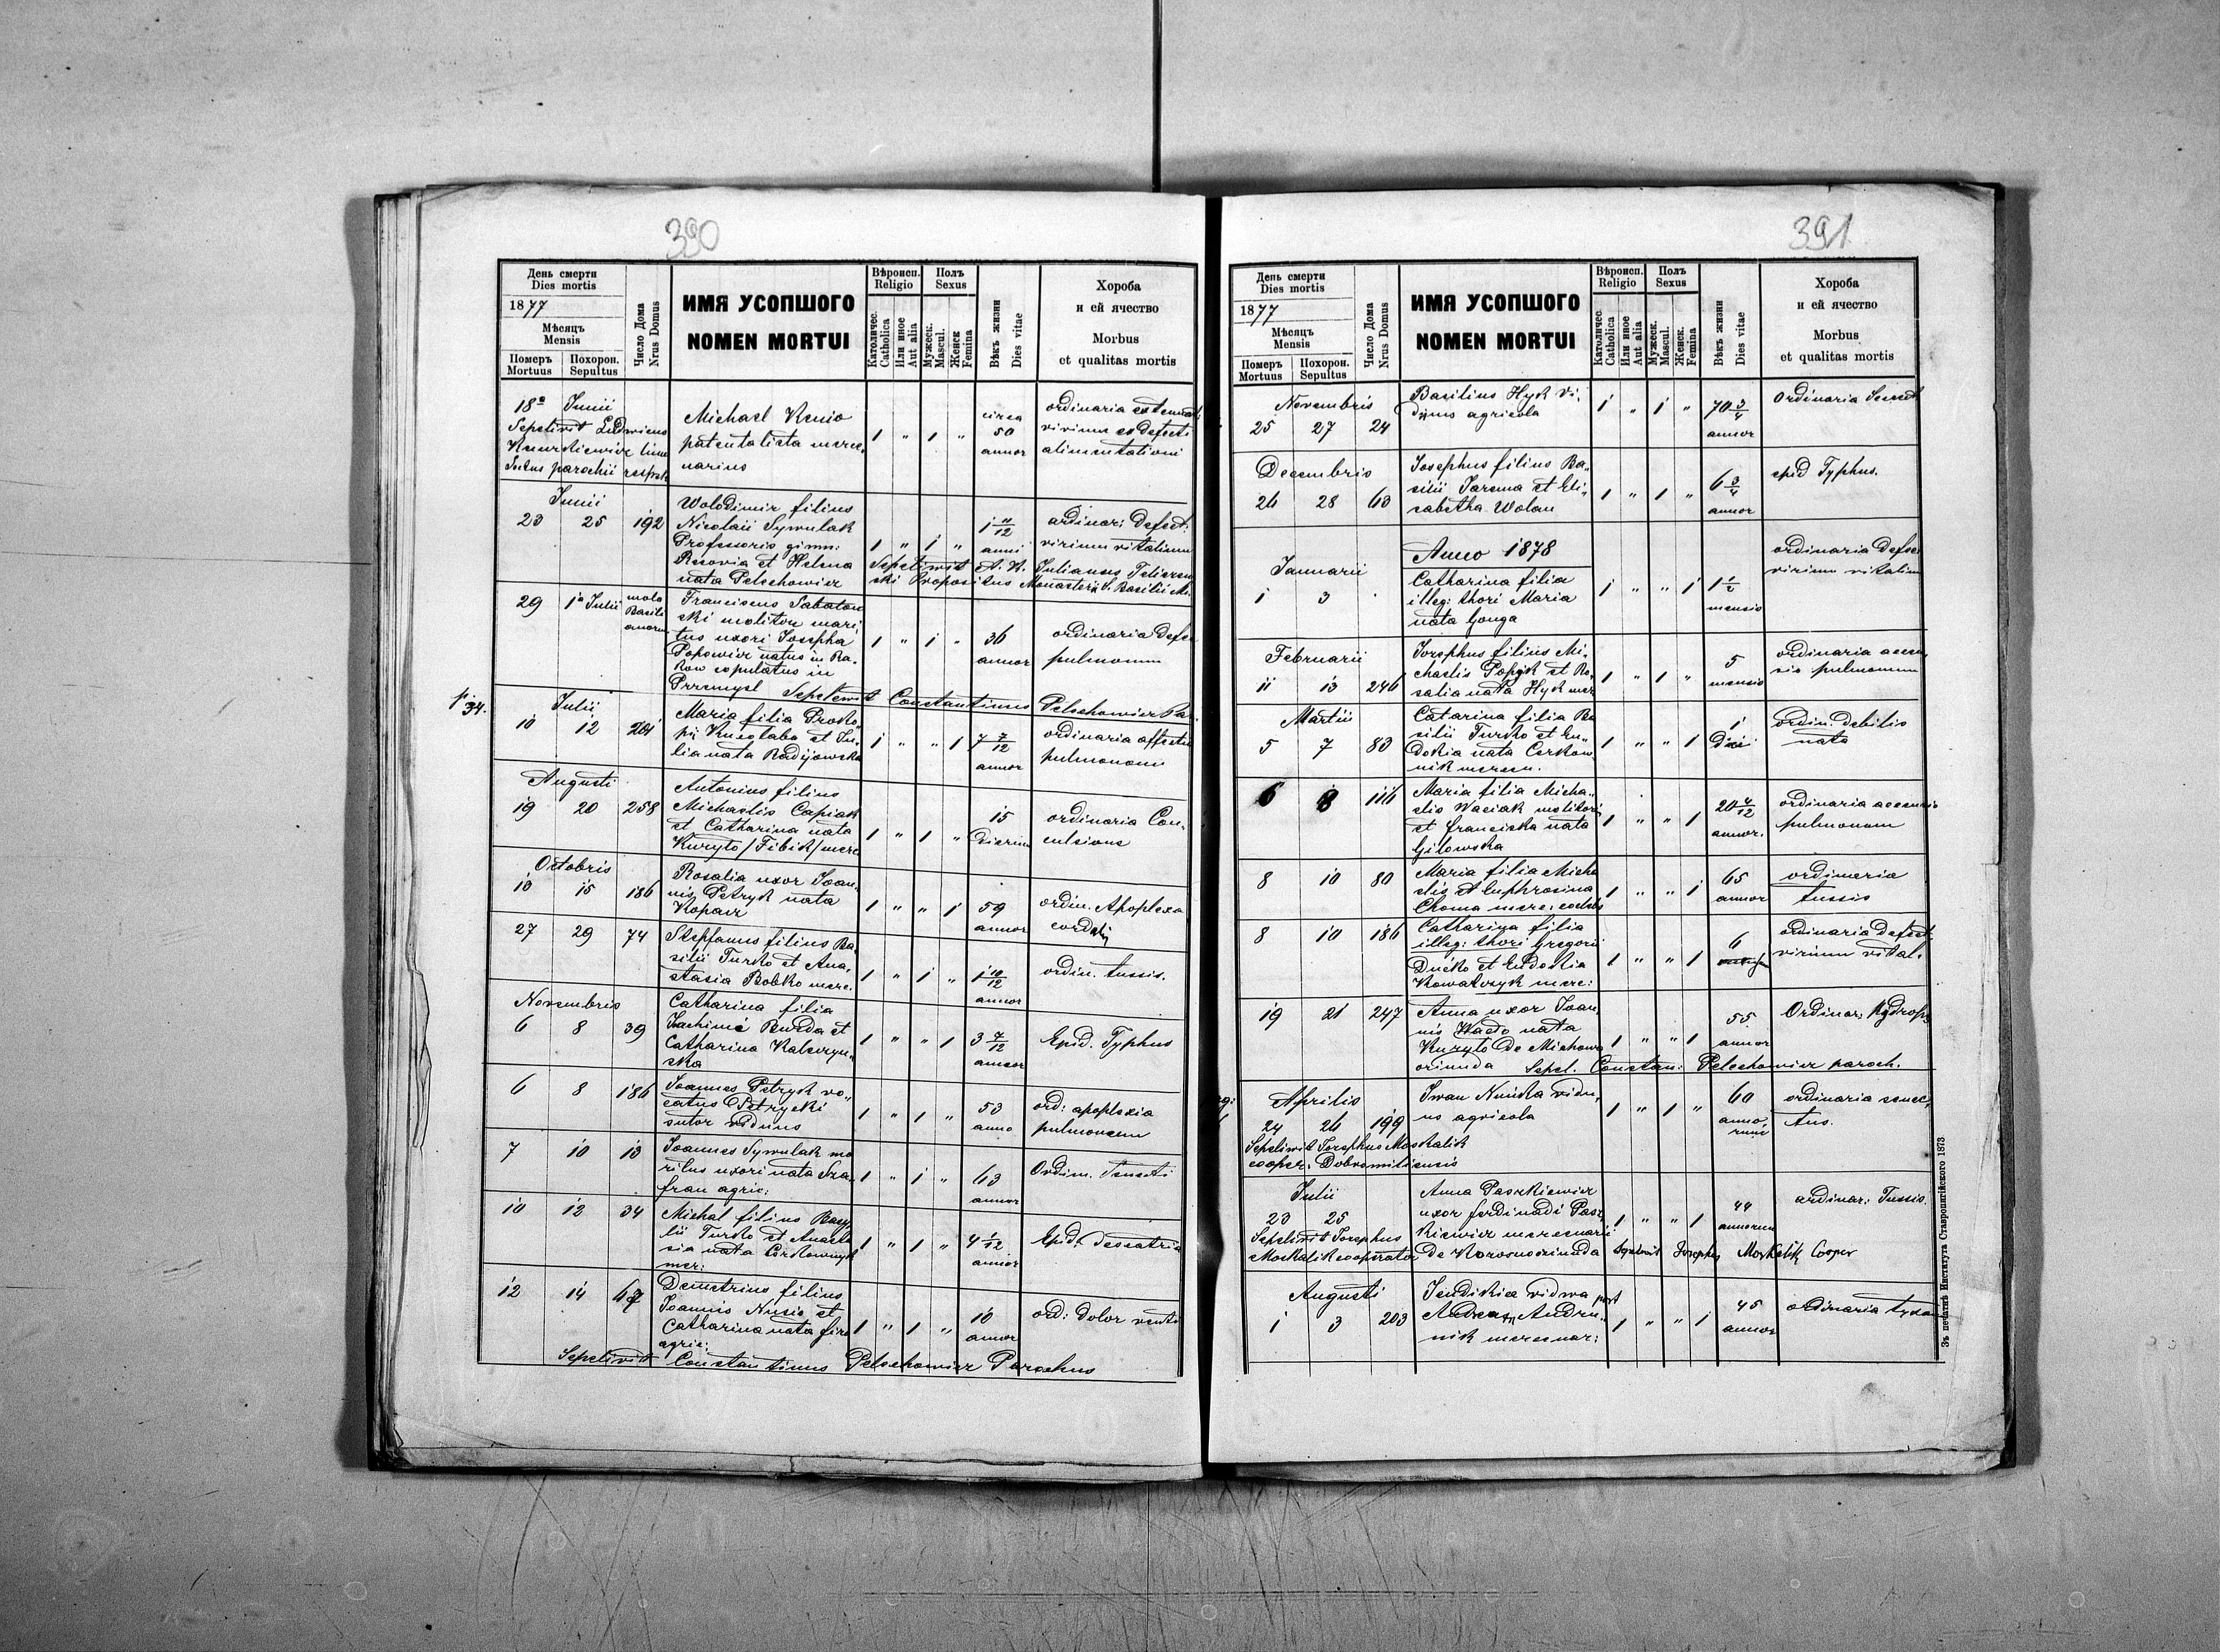 390
День смерти
Dies mortis
1877
Мѣсяцъ
Mensis
Померъ Похорон.
Mortuus Sepultus
Число Дома
Nrus Domus
ИМЯ УСОПШОГО
NOMEN MORTUI
Вѣроисп.
Religio
Католичес.
Catholica
Или иное
Aut alia
Полъ
Sexus
Мужеск.
Mascul.
Женск
Femina
Вѣкъ жизни
Dies vitae
Хороба
и ей ячество
Morbus
et qualitas mortis
18a Junii
Sepelivit Ludwicus
parochii
Michael Kusio
1 " 1 "
circa
50
annor
ordinaria
virium ex defectu
alimentationi
Junii
23 25 192
Wolodimir filius
Nicolaii Sywulak
Professoris gimn:
Resovia et Helena
nata Pelechowicz
1 " 1 "
1 11/12
anni
ordinar: defect:
virium vitalium
Sepelivit A. R. Julianus
ski Propositus Monasterii S. Basilii M.
29 1a Julii
molo
Basili
anorum
Franciscus
ski molitor mari,
tus uxori Josepha
Popowicz natus in Ra.
kow copulatus in
Przemysl
1 " 1 "
36
annor
ordinaria defec
pulmonum
Sepelivit Constantinus Pelechowicz Pa
p. 34.
Julii
10 12 201
Maria filia Proko,
pii et Ju,
lia nata Radijowska
1 " " 1
7 7/12
annor
ordinaria affectu
pulmonom
Augusti
19 20 258
Antonius filius
Michaelis Capiak
et Catharina nata
Kuryto /Fibik/ merc
1 " 1 "
15
dierum
ordinaria Con,
culsions
Octobris
13 15 186
Rosalia uxor Joan,
nis Petryk nata
Kopacz
1 " " 1
59
annor
ordin. Apoplexa
cordis
27 29 74
Stepfanus filius Ba,
silii Turko et Ana,
stasia Bobko merc.
1 " 1 "
1 10/12
annor
ordin. tussis.
Novembris
6 8 39
Catharina filia
Jachimi Burda et
Catharina Kalwryn,
ska
1 " " 1
3 7/12
annor
Epid. Typhus
6 8 186
Joannes Petryk vo,
catus Petrycki
sutor viduus
1 " 1 "
53
anno
ord: apoplexia
pulmonum
7 10 13
Joannes Sywulak ma
ritus uxori nata Sza,
fran agric:
1 " 1 "
63
annor
Ordin.
10 12 34
Michal filius Basy
lii Turko et Anasta
sia nata Cerkownyk
mer:
1 " 1 "
4 1/12
annor
Epid.
12 14 67
Demetrius filius
Joannis Nusio et
Catharina nata
agric:
1 " 1 "
10
annor
ord: dolor ventr
Sepelivit Constantinus Pelechowicz Parochus
391
День смерти
Dies mortis
1877
Мѣсяцъ
Mensis
Померъ Похорон.
Mortuus Sepultus
Число Дома
Nrus Domus
ИМЯ УСОПШОГО
NOMEN MORTUI
Вѣроисп.
Religio
Католичес
Catholica
Или иное
Aut alia
Полъ
Sexus
Мужеск.
Mascul.
Женск.
Femina
Вѣкъ жизни
Dies vitae
Хороба
и ей ячество
Morbus
et qualitas mortis
Novembris
25 27 24
Basilius Hyk vi,
duus agricola
1 " 1 "
70 3/4
annor
Ordinaria Senect
Decembris
26 28 63
Josephus filius Ba,
silii Jarema et Eli,
sabetha Wolan
1 " 1 "
6 3/4
annor
epid Typhus.
Anno 1878
Januarii
1 3
Catharina filia
illeg: thori Maria
nata Gonga
1 " " 1
1 1/2
mensis
ordinaria defec
virium vitalium
Februarii
11 13 246
Josephus filius Mi,
chaelis Popyk et Ro,
salia nata Hyk mer
1 " 1 "
5
mensis
ordinaria accen,
sio pulmonum
Martii
5 7 83
Catarina filia Ba
silii Turko et Eu,
dokia nata Cerkow
nik mercen.
1 " " 1
1
diei
ordin. debilis
nata
6 8 116
Maria filia Micha,
elis Waciak molitori
et franciska nata
Gilowska
1 " " 1
20 4/12
annor.
ordinaria accensio
pulmonum
8 10 80
Maria filia Micha
elis et Euphrosina
Choma merc: coelebs
1 " " 1
65
annor
ordinaria
tussis
8 10 186
Catharina filia
illeg: thori Gregorii
Dućko et Eudokia
Kowalczyk merc:
1 " " 1
6
ordinaria defect
virium vital.
19 21 247
Anna uxor Joan,
nis nata
Kuryto de Michowa
oriunda
1 " " 1
55
annor
Ordinar: Hydrops
Sepel. Constan: Pelechowicz paroch.
Aprilis
24 26 199
Iwan vidu,
us agricola
1 " 1 "
60
anno,
rum
ordinaria senec,
tus.
Sepelivit Josephus Moskalik
cooper: Dobromiliensis
Julii
23 25
Anna Paszkiewicz
uxor ferdinadi Pasz
kiewicz mercenarii
de Korosno oriunda
1 " " 1
44
annorum
ordinar: Tussis.
Sepelivit Josephus
Moskalik cooperator
Sepelivit Josephus Moskalik Cooper
Augusti
1 3 203
vidwa post
Andream Andru,
nik mercenar:
1 " " 1
45
annor
ordinaria
Зъ печатнѣ Института Ставропигійского 1873